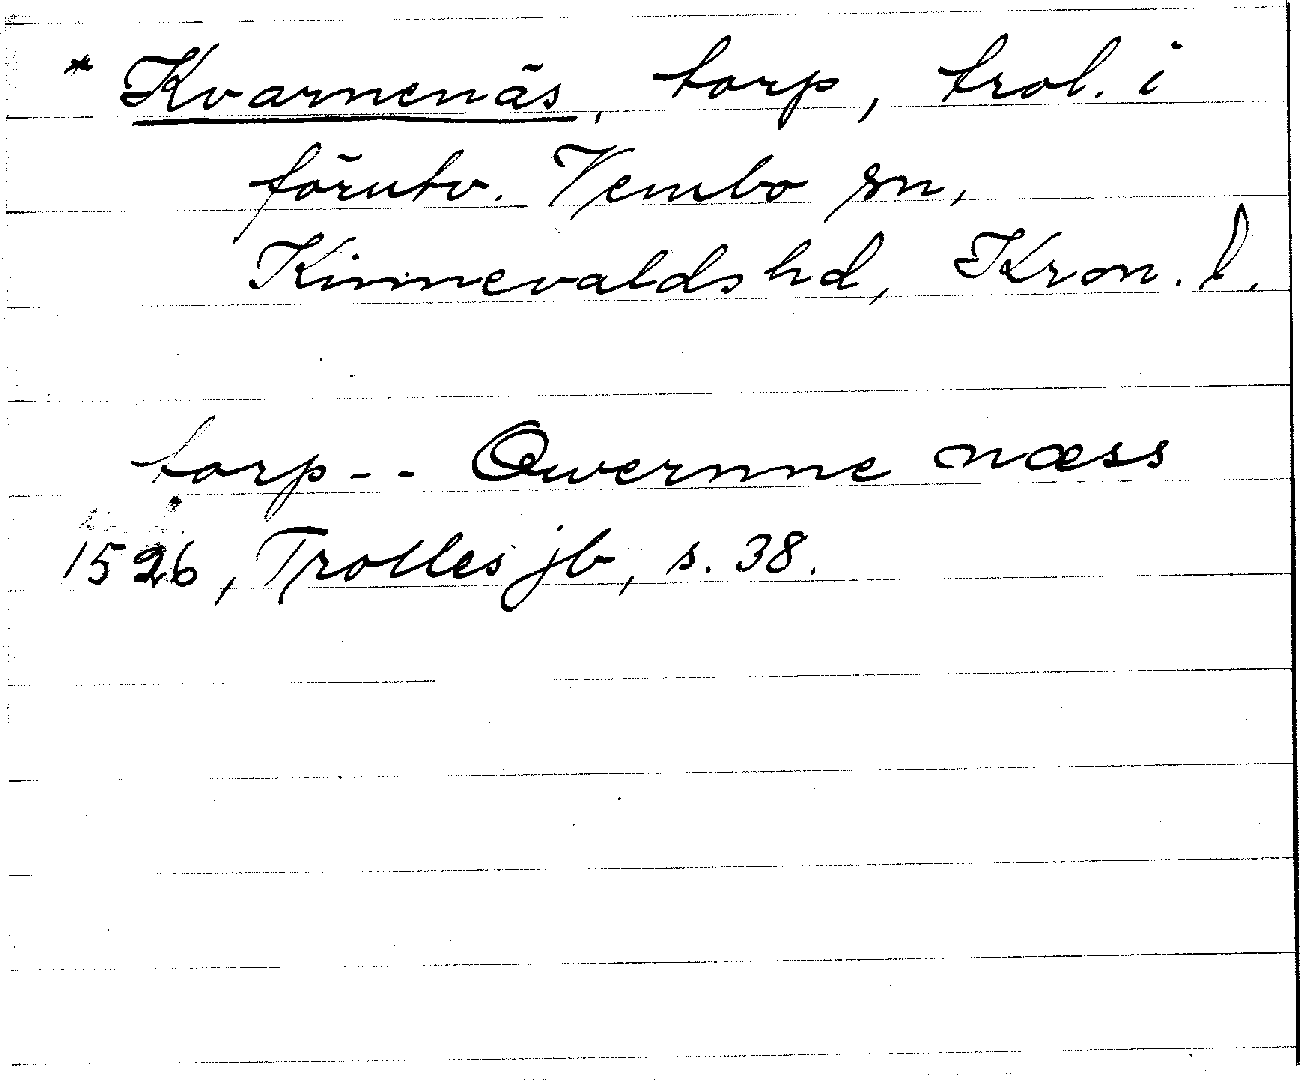 * Kvarnenäs, torp, trol. i
förutv. Vembo sn,
Kinnevalds hd, Kron. l.
torp -- Qwernne næss
1526, Trolles jb, s. 38.